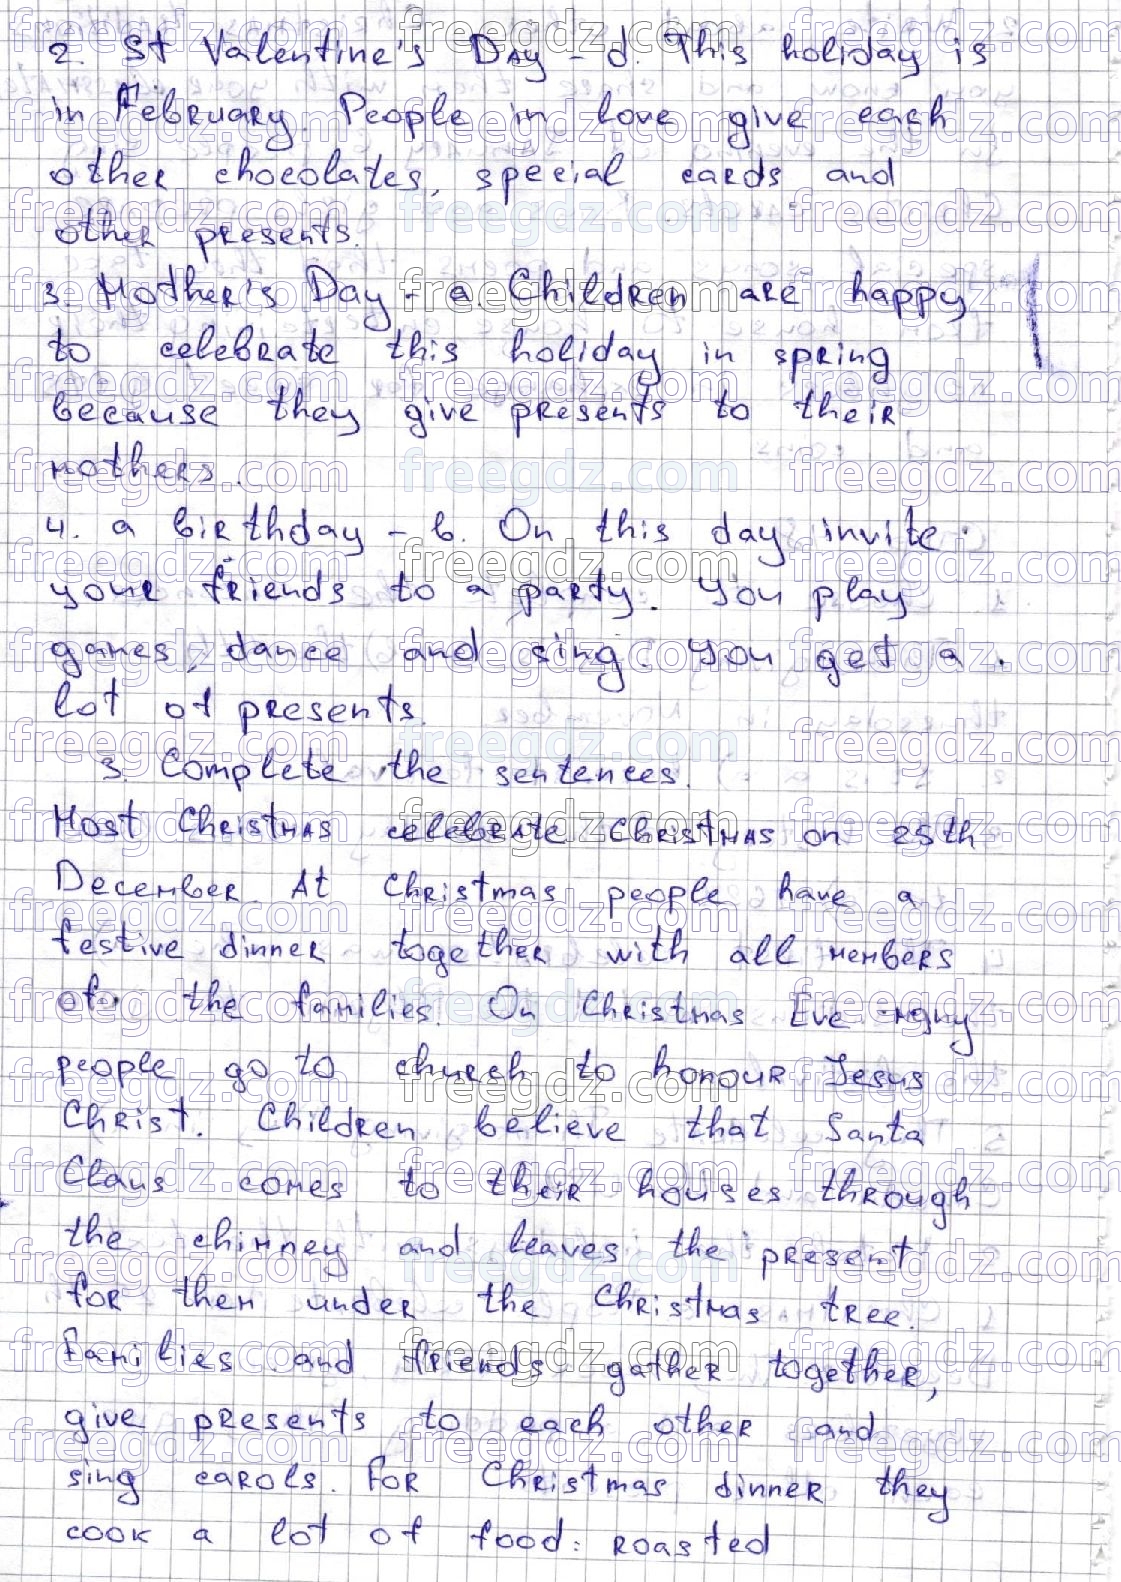 2. St Valentine's Day - d. This holiday is
in February. People in love give each
other chocolates, special cards and
other presents.
3. Mother's Day - a. Children are happy
to celebrate this holiday in spring
because they give presents to their
mothers.
4. a birthday - b. On this day invite
your friends to a party. You play
games, dance and sing. You get a
lot of presents.
3. Complete the sentences.
Most Christmas celebrate Christmas on 25th
December. At Christmas people have a
festive dinner together with all members
of the families. On Christmas Eve many
people go to church to honour Jesus
Christ. Children believe that Santa
Claus comes to their houses through
the chimney and leaves the present
for them under the Christmas tree.
Families and friends gather together,
give presents to each other and
sing carols. For Christmas dinner they
cook a lot of food: roasted